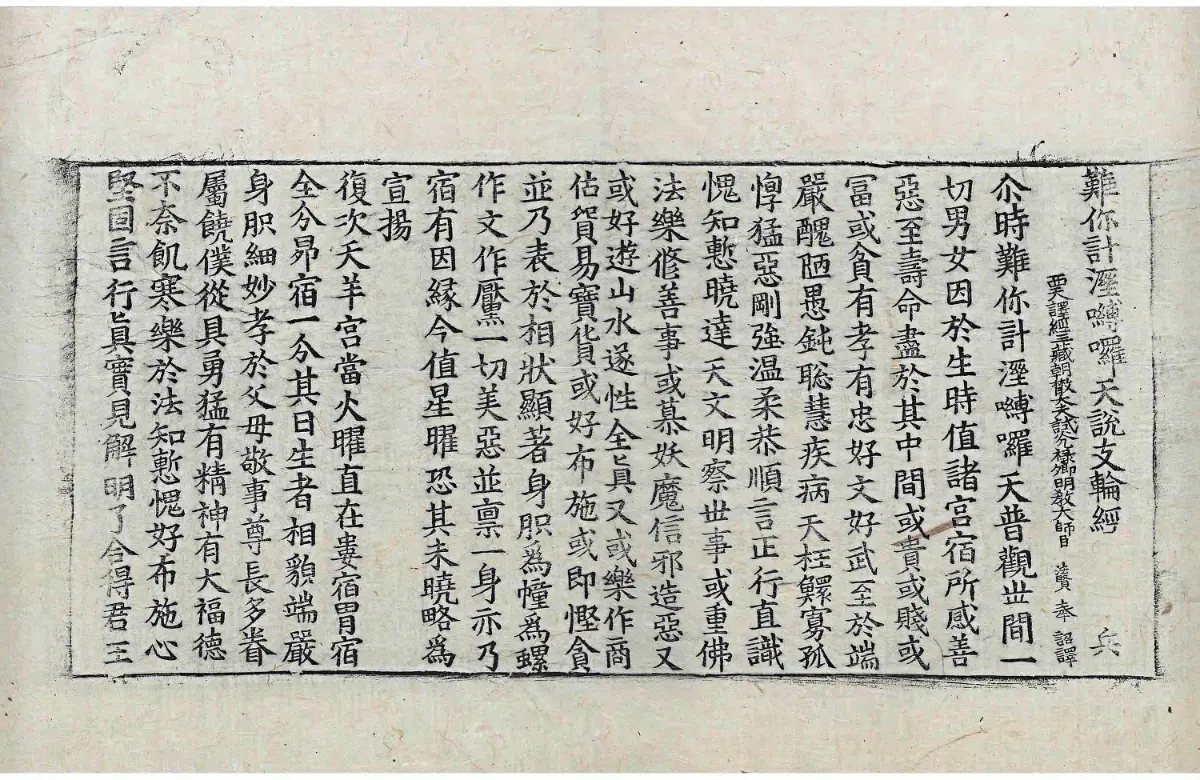 難你計溼嚩囉天說支輪經 兵
西天譯經三藏朝散大夫試光祿卿明教大師臣 法賢 奉 詔譯
尒時難你計溼嚩囉天普觀世間一
切男女因於生時值諸宮宿所感善
惡至壽命盡於其中間或貴或賤或
冨或貧有孝有忠好文好武至於端
嚴醜陋愚鈍聡慧疾病夭枉鰥寡孤
惸猛惡剛強温柔恭順言正行直識
愧知慙曉達天文明察世事或重佛
法樂修善事或慕妖魔信邪造惡又
或好遊山水遂性全具又或樂作商
估貿易寶貨或好布施或即慳貪
並乃表於相狀顯著身胑為幢為螺
作文作黶一切美惡並禀一身亦乃
宿有因緣今值星曜恐其未曉略為
宣揚
復次天羊宮當火曜直在婁宿胃宿
全分昴宿一分其日生者相貌端嚴
身胑細妙孝於父母敬事尊長多眷
屬饒僕從具勇猛有精神有大福德
不奈飢寒樂於法知慙愧好布施心
堅固言行真實見解明了合得君王